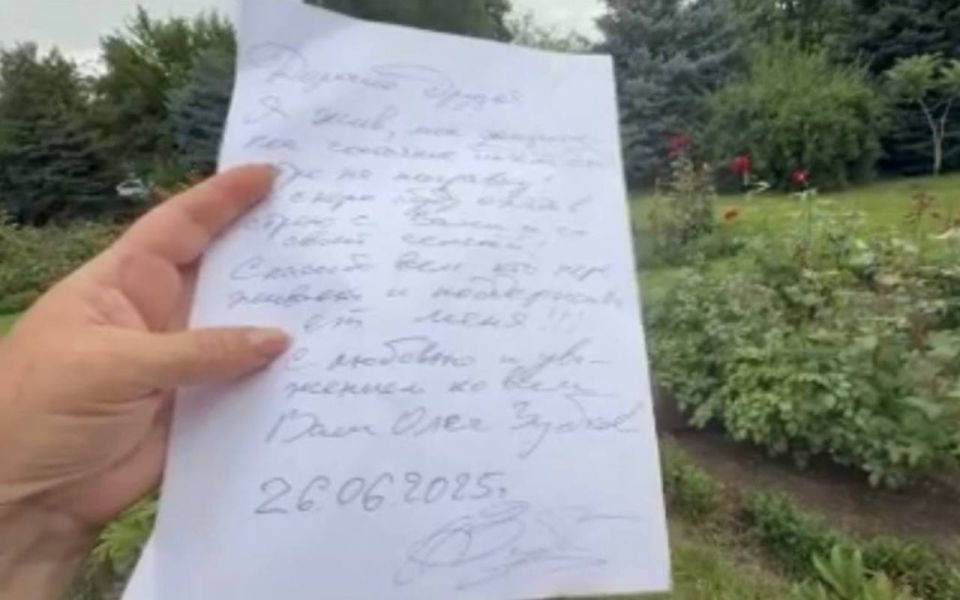 Дорогие друзья
Я жив, не
не
Уже не
скоро буду опять в
строю с Вами и со
своей семьёй!
Спасибо всем, кто пере
живает и поддержива
ет меня!!!
С любовью и ува-
жением ко всем
Ваш Олег Зубков
26.06.2025г.